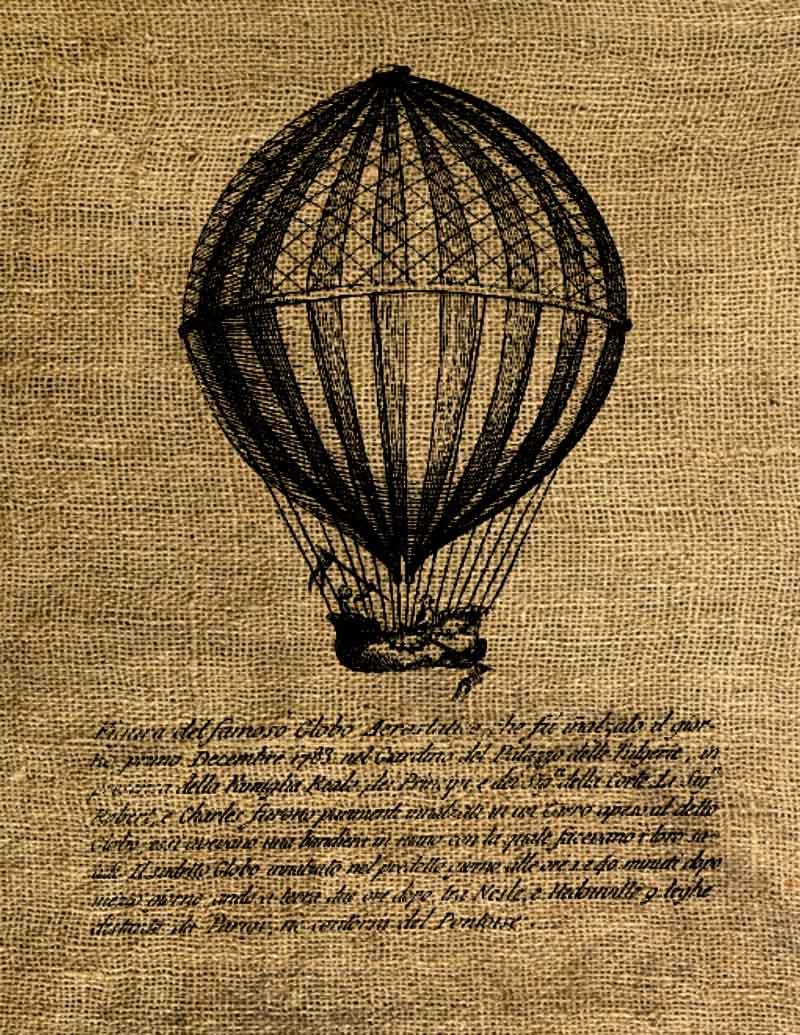 Figura del famoso Globo Aerostatico, che fù inalzato il gior-
no primo Decembre 1783. nel Giardino del Palazzo delle Tulgerie, in
presenza della Famiglia Reale, dei Principi, e dei Sig.ri della Corte. Li Sig.ri
Robert, e Charles furono parimente innalzati in un Carro apeso al detto
Globo, essi avevano una bandiera in mano con la quale facevano i loro sa-
luti. Il sudetto Globo innalzato nel predetto giorno alle ore 1. e 40. minuti dopo
mezzo giorno, andò a terra due ore dopo, tra Nesle, e Hedouville 9 leghe
distante da Parigi, ne contorni del Pontoise